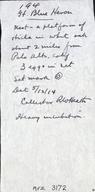 194
Gt. Blue Heron
Nest - a platform of
sticks in white oak
about 2 miles from
Palo Alto, Calif
3 eggs in set
Set mark @
Date 5/13/14
Collector
Heavy incubation
MVR 3172